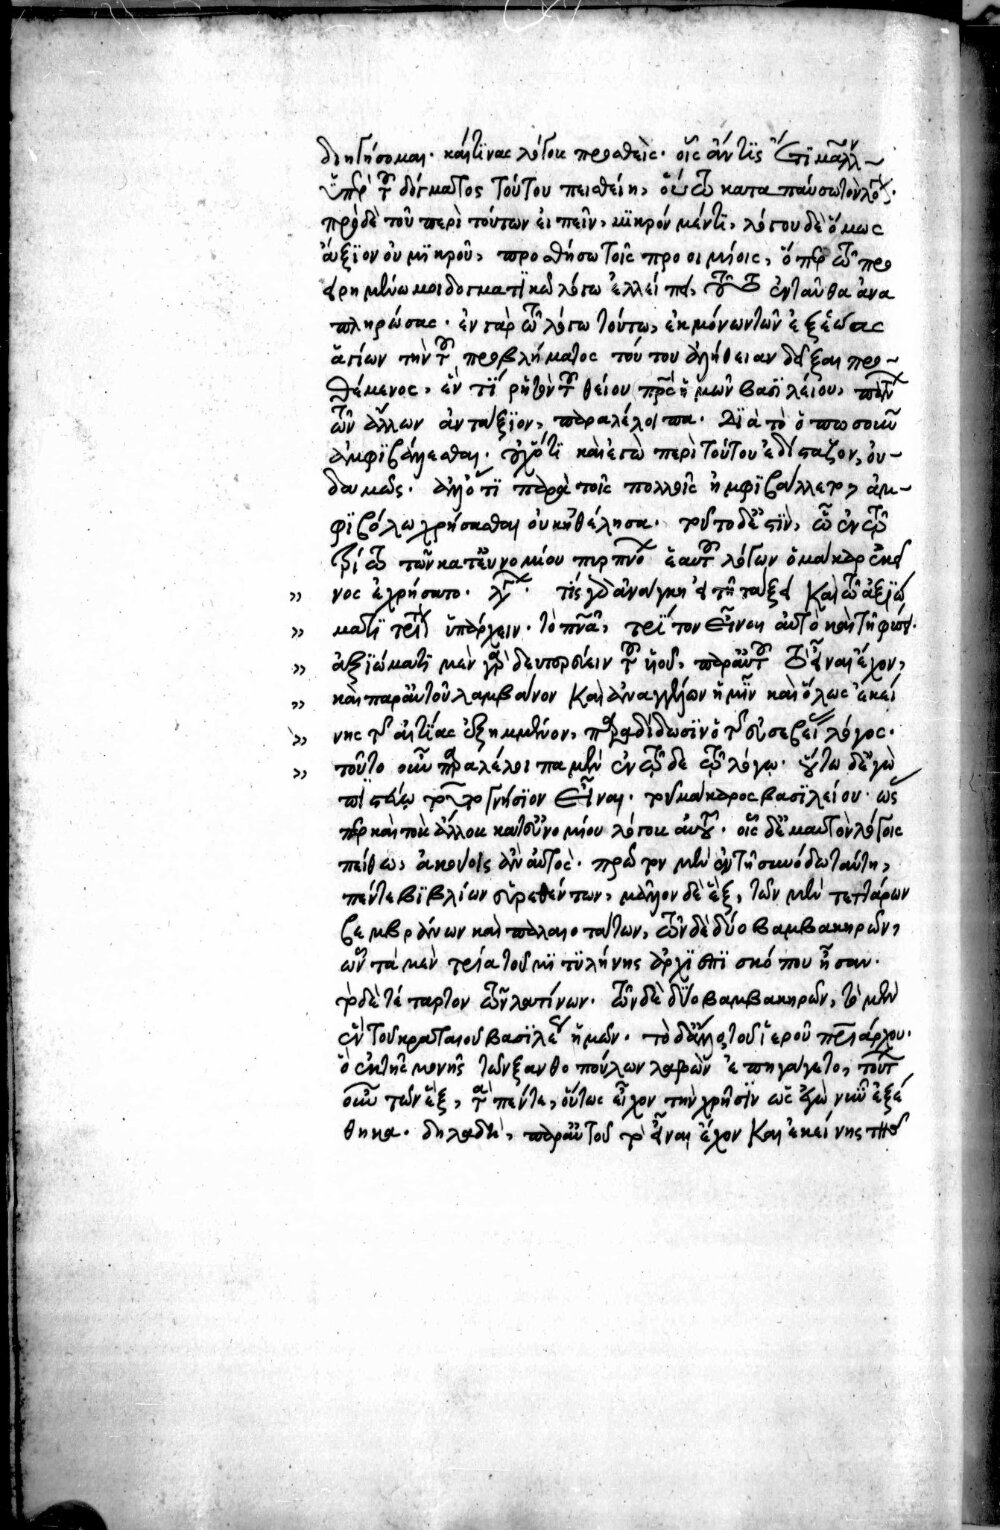 διηγήσομαι. καί τινας λόγους προσθεὶς. οἷς ἄν τις ἔτι μᾶλλον
ὑπὲρ τοῦ δόγματος τούτου πεισθείη, οὕτω καταπαύσω τὸν λόγον.
πρὸ δὲ τοῦ περὶ τούτων εἰπεῖν, μικρόν μέν τι, λόγου δὲ ὅμως
ἄξιον οὐ μικροῦ, προσθήσω τοῖς προοιμίοις, ὅπερ τῶ προ
ειρημένω μοι δογματικῶ λόγω ἐλλείπει, τοῦτο ἐνταῦθα ἀνα
πληρώσας. ἐν γὰρ τῶ λόγω τούτω, ἐκ μόνων τῶν ἐξ ἑώας
ἁγίων τὴν τοῦ προβλήματος τούτου ἀλήθειαν δεῖξαι προ
θέμενος, ἕν τι ῥητὸν τοῦ θείου πατρὸς ἡμῶν βασιλείου, πολλῶν
τῶν ἄλλων ἀντάξιον, παραλέλοιπα. διὰ τὸ ὁπωσοῦν
ἀμφιβάλλεσθαι. οὐχ ὅτι καὶ ἐγὼ περὶ τούτου ἐδίσταζον, οὐ
δαμῶς. ἀλλ' ὅτι παρὰ τοῖς πολλοῖς ἠμφιβάλλετο, ἀμ
φιβόλω χρήσασθαι οὐκ ἠθέλησα. τοῦτο δέ ἐστιν, ὧ ἐν τῶ
τρίτω τῶν κατ' εὐνομίου περὶ πνεύματος ἑαυτοῦ λόγων ὁ μακάριος ἐκεῖ
νος ἐχρήσατο. λέγων. τίς γὰρ ἀνάγκη εἰ τῆ τάξει καὶ τῶ ἀξιώ
ματι τρίτον ὑπάρχειν. τὸ πνεῦμα, τρίτον εἶναι αὐτὸ καὶ τῆ φύσει.
ἀξιώματι μὲν γὰρ δευτερεύειν τοῦ υἱοῦ, παρ' αὐτοῦ τὸ εἶναι ἔχον,
καὶ παρ' αὐτοῦ λαμβάνον καὶ ἀναγγέλλον ἡμῖν καὶ ὅλως ἐκεί
νης τῆς αἰτίας ἐξημμένον, παραδίδωσιν ὁ τῆς εὐσεβείας λόγος.
τοῦτο οὖν παραλέλοιπα μὲν ἐν τῶδε τῶ λόγω. οὕτω δὲ ἐγὼ
πιστεύω τοῦτο γνήσιον εἶναι. τοῦ μακαρίου βασιλείου. ὥς
περ καὶ τοὺς ἄλλους κατ' εὐνομίου λόγους αὐτοῦ. οἷς δ' ἐμαυτὸν λόγοις
πείθω, ἀκούοις ἂν αὐτὸς. πρῶτον μὲν ἐν τῆ συνόδω ταύτη,
πέντε βιβλίων εὑρεθέντων, μᾶλλον δὲ ἓξ, τῶν μὲν τεττάρων
βεμβράνων καὶ παλαιοτάτων, τῶν δὲ δύο βαμβακηρῶν,
ὧν τὰ μὲν τρία τοῦ μιτυλήνης ἀρχιεπισκόπου ἦσαν.
τὸ δὲ τέταρτον τῶν λατίνων. τῶν δὲ δύο βαμβακηρῶν, τὸ μὲν
ἓν τοῦ κραταιοῦ βασιλέως ἡμῶν. τὸ δὲ ἄλλο, τοῦ ἱεροῦ πατριάρχου.
ὃ ἐκ τῆς μονῆς τῶν ξανθοπούλων λαβὼν ἐπηγάγετο, τούτων
οὖν τῶν ἓξ, τὰ πέντε, οὕτως εἶχον τὴν χρῆσιν ὡς ἐγὼ νῦν ἐξέ
θηκα. δηλαδὴ, παρ' αὐτοῦ τὸ εἶναι ἔχον καὶ ἐκείνης τῆς